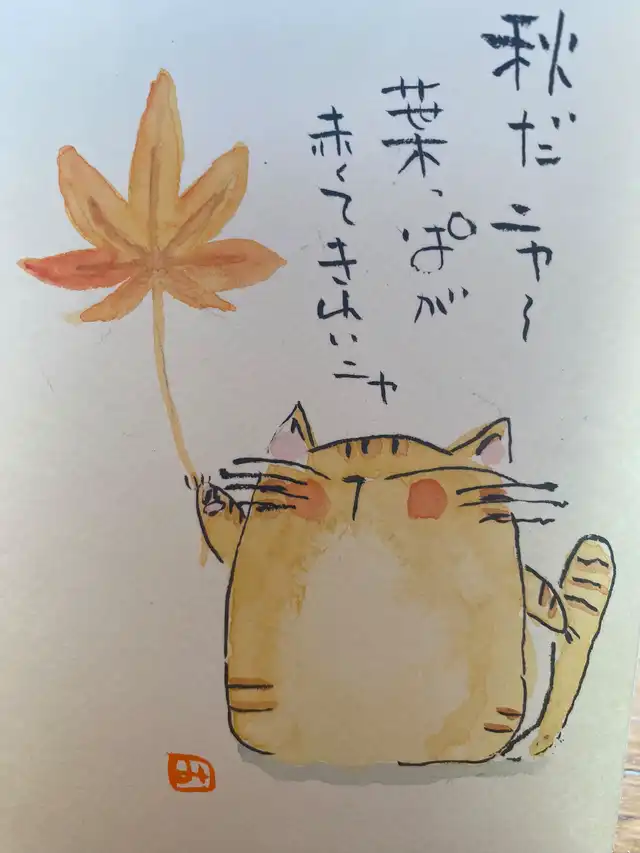 秋だニャ〜
葉っぱが
赤くてきれいニャ
み